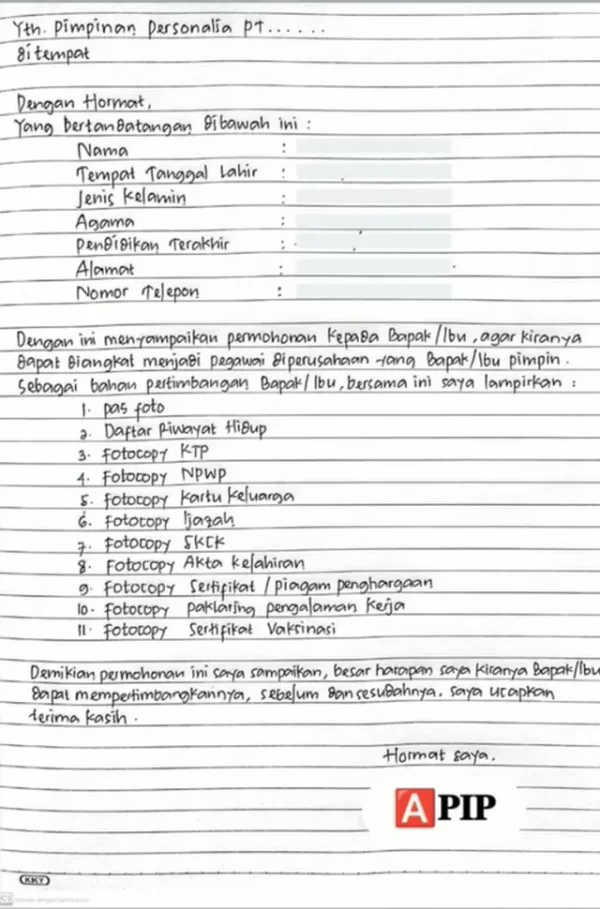 Yth. Pimpinan Personalia PT......
di tempat
Dengan Hormat,
Yang bertandatangan dibawah ini :
Nama :
Tempat Tanggal Lahir :
Jenis Kelamin :
Agama :
Pendidikan Terakhir :
Alamat :
Nomor Telepon :
Dengan ini menyampaikan permohonan kepada Bapak/Ibu, agar kiranya
dapat diangkat menjadi pegawai diperusahaan yang Bapak/Ibu pimpin.
Sebagai bahan pertimbangan Bapak/Ibu, bersama ini saya lampirkan :
1. pas foto
2. Daftar Riwayat Hidup
3. Fotocopy KTP
4. Fotocopy NPWP
5. Fotocopy Kartu Keluarga
6. Fotocopy Ijazah
7. Fotocopy SKCK
8. Fotocopy Akta kelahiran
9. Fotocopy Sertifikat / piagam penghargaan
10. Fotocopy paklaring pengalaman kerja
11. Fotocopy Sertifikat Vaksinasi
Demikian permohonan ini saya sampaikan, besar harapan saya kiranya Bapak/Ibu
dapat mempertimbangkannya, sebelum dan sesudahnya, saya ucapkan
terima kasih.
Hormat saya.
A PIP
KKY
CS